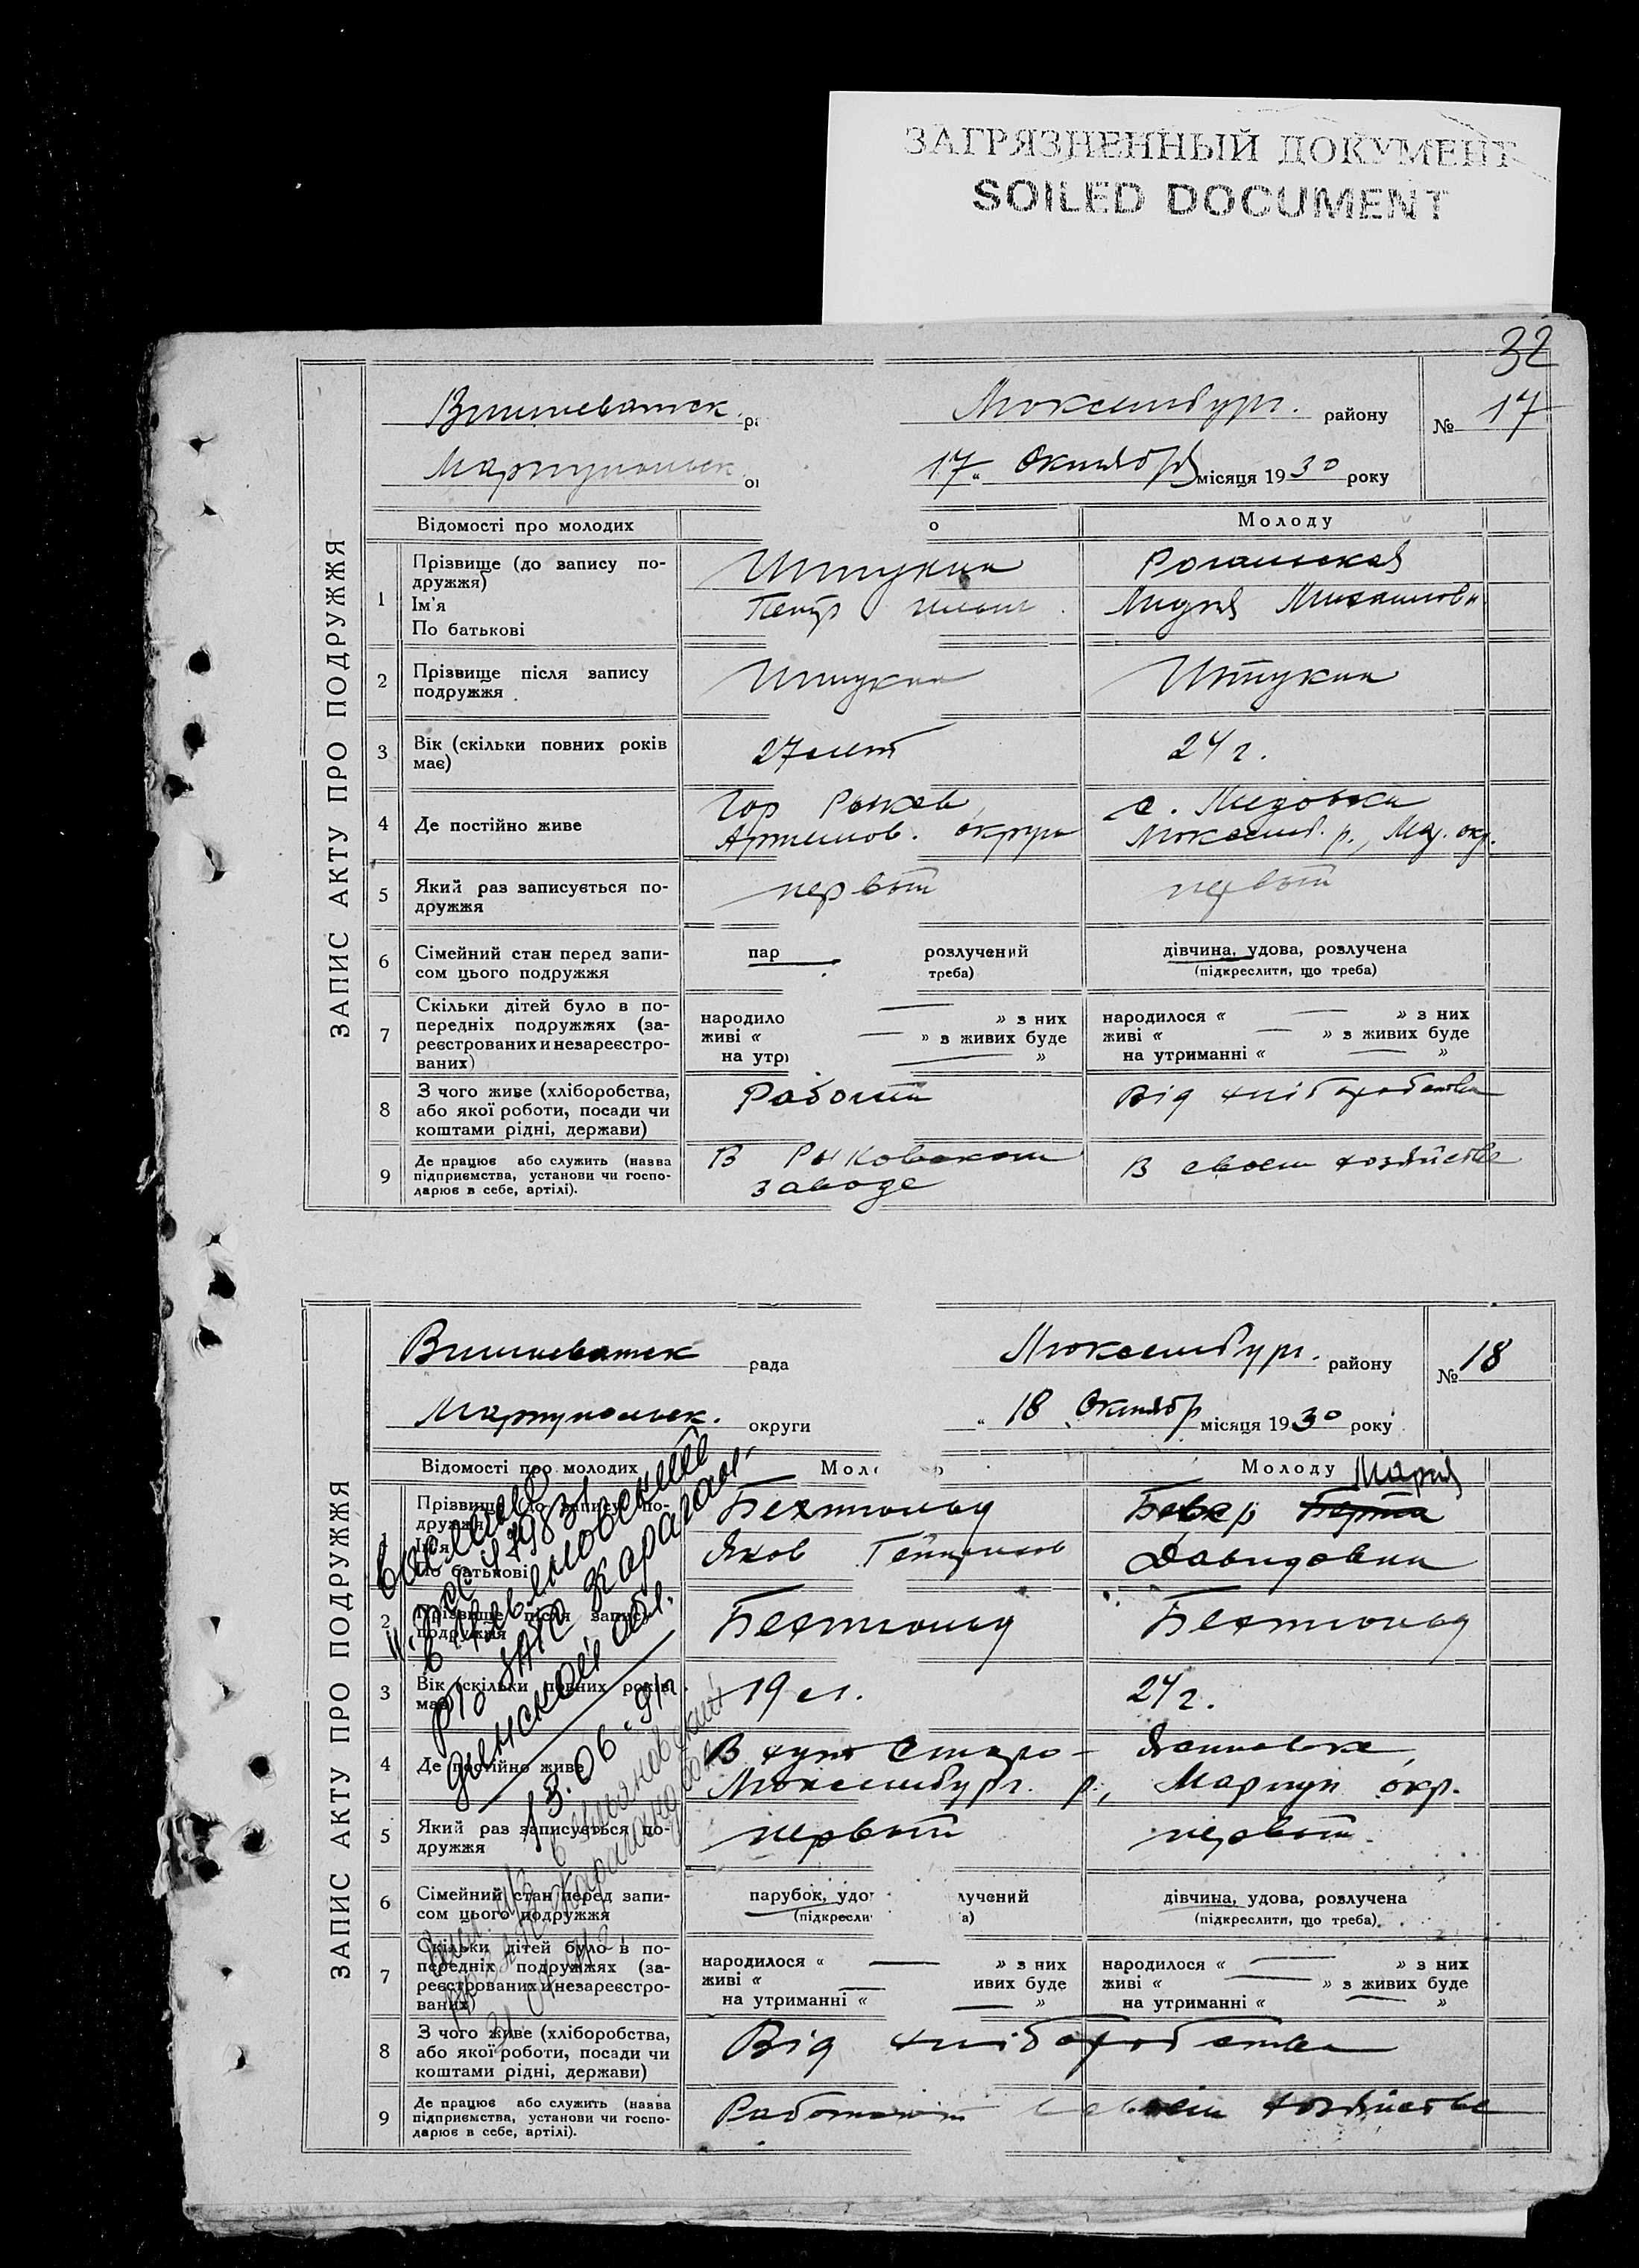 ЗАГРЯЗНЕННЫЙ ДОКУМЕНТ
SOILED DOCUMENT
32
ЗАПИС АКТУ ПРО ПОДРУЖЖЯ
Вишневатск. Люксембург. району № 17
Мариупольск. 17 " Октября місяця 1930 року
Відомості про молодих Молоду
1 Прізвище (до запису по-
дружжя)
Ім'я
По батькові
Штукин
Петр
Рогальская
Лидия Михайловн
2 Прізвище після запису
подружжя
Штукин Штукин
3 Вік (скільки повних років
має)
27 лет 24 г.
4 Де постійно живе
Гор Рыков,
Артемов. округи
с.
Люксемб. р., Мар. окр.
5 Який раз записується по-
дружжя
первый первый
6 Сімейний стан перед запи-
сом цього подружжя
пар розлучений
треба)
дівчина, удова, розлучена
(підкреслити, що треба)
7 Скільки дітей було в по-
передніх подружжях (за-
реєстрованих и незареєстро-
ваних)
народило — » з них
живі « — » з живих буде
на утри — »
народилося « — » з них
живі « — » з живих буде
на утриманні « — »
8 З чого живе (хліборобства,
або якої роботи, посади чи
коштами рідні, держави)
Від хліборобства
9 Де працює або служить (назва
підприємства, установи чи госпо-
дарює в себе, артілі).
В Рыковском
заводе
В своем хозяйстве
ЗАПИС АКТУ ПРО ПОДРУЖЖЯ
Вишневатск рада Люксембург. району № 18
Мариупольск. округи " 18 Октябр місяця 1930 року
Відомості про молодих Молоду
1 Прізвище (до запису по-
дружжя)
Ім'я
По батькові
Бехтольд
Яков Гейнрихов
Мария
Бекер Берта
Давидовна
2 Прізвище після запису
подружжя
Бехтольд Бехтольд
3 Вік (скільки повних років
має)
19 л. 24 г.
4 Де постійно живе
В хут Старо-
Люксембург. р.,
Мариуп окр.
5 Який раз записується по-
дружжя
первый первый
6 Сімейний стан перед запи-
сом цього подружжя
парубок, удо лучений
(підкресли а)
дівчина, удова, розлучена
(підкреслити, що треба)
7 Скільки дітей було в по-
передніх подружжях (за-
реєстрованих и незареєстро-
ваних)
народилося « — » з них
живі « — ивих буде
на утриманні « — »
народилося « — » з них
живі « — » з живих буде
на утриманні « — »
8 З чого живе (хліборобства,
або якої роботи, посади чи
коштами рідні, держави)
Від хліборобства
9 Де працює або служить (назва
підприємства, установи чи госпо-
дарює в себе, артілі).
Работают своем хозяйстве
13.06.91г.